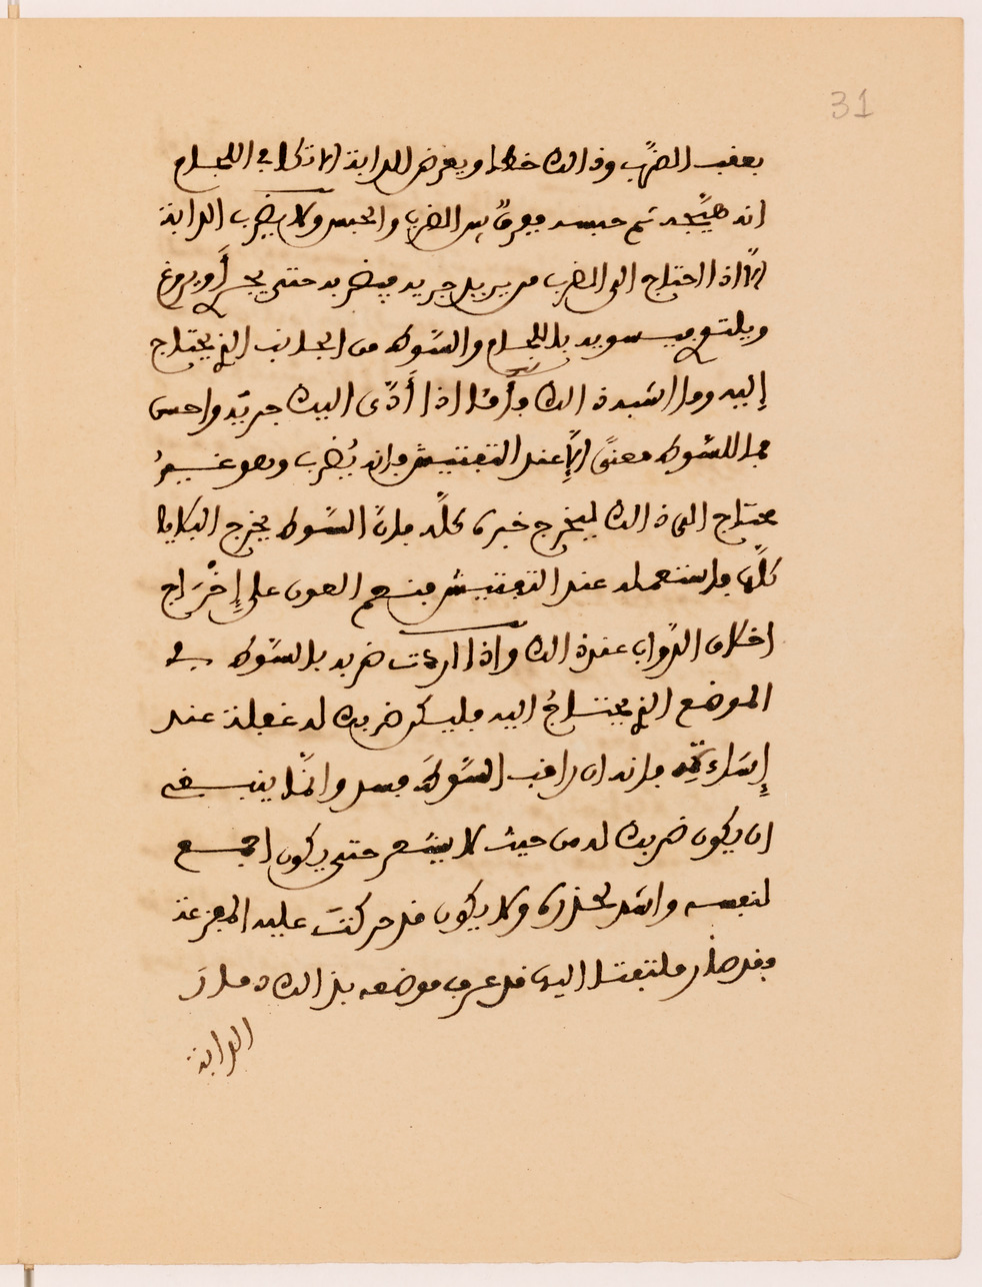 31
بعقب الضرب وذالك خطا ويعرض للدابة الاتكا في اللجام
انه هيّجه ثم حبسه ففرق بين الضرب والحبس ولا يضرب الدابة
الّا اذا احتاج الى الضرب من يريد جريه فيضربه حتى يجري أو يروغ
ويلتوي فيسويه باللجام والسّوط من الجانب الذي يحتاج
إليه وما اشبه ذالك وأمّا اذا أدّى اليك جريه واحسن
فما للسّوط معنىً الّا عند التفتيش فانه يُضرب وهو غيرُ
محتاج الى ذالك ليخرج خبره كلّه فانّ السّوط يخرج البلايا
كلّها فاستعمله عند التفتيش فنعم العون على إخْرَاج
اخلاق الدّواب عند ذالك واذا اردت ضربه بالسّوط في
الموضع الذي يحتاج اليه فليكن ضربك له غفلة عند
إشارتِه فانه ان راقب السّوطَ فسد وانّما ينبغي
ان يكون ضربك له من حيث لا يشعر حتى يكون اجمع
لنفسه واشد لحذره ولا يكون قد حركتَ عليه المقرعة
فقد صار ملتفتا اليها قد عرف موضعه بذالك
الدابة